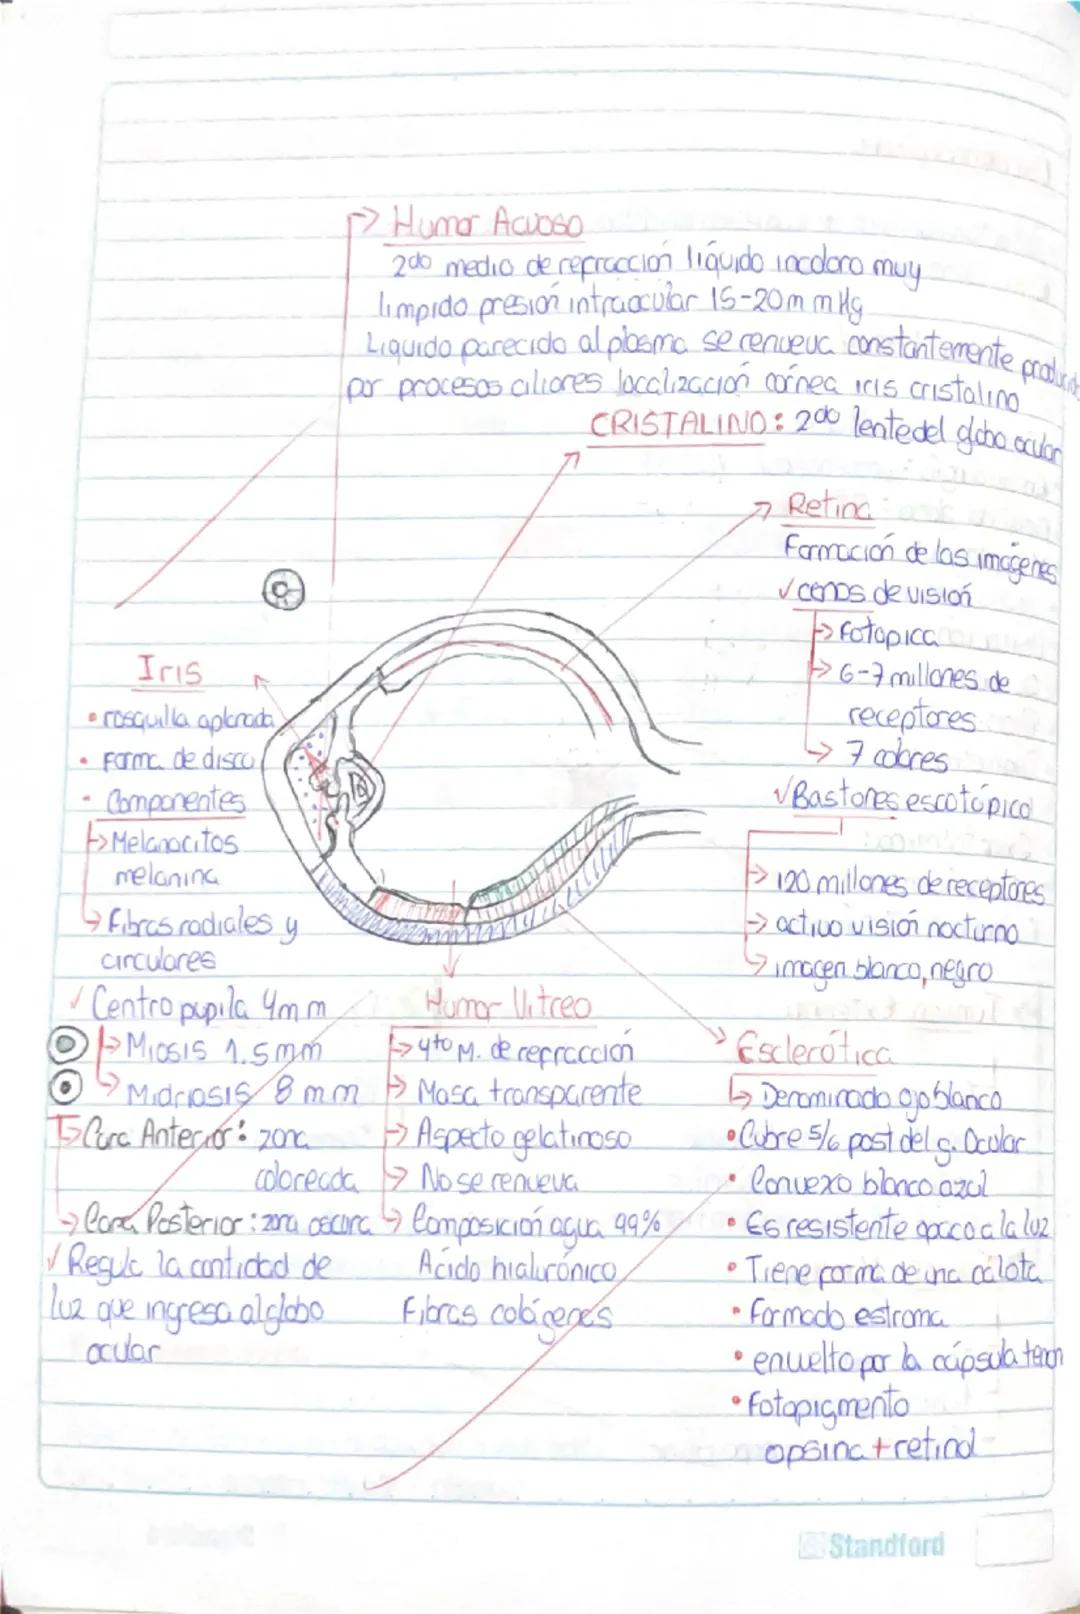 Humor Acuoso
2do medio de refraccion líquido incoloro muy
limpido presión intraocular 15-20mmHg
Liquido parecido al plasma se renueva constantemente
por procesos ciliares localización córnea iris cristalino
CRISTALINO: 2do lente del globo ocular
Retina
Formación de las imágenes
✓ conos de visión
→ fotopica
→ 6-7 millones de
receptores
→ 7 colores
✓ Bastones escotópico
→ 120 millones de receptores
→ activo visión nocturno
→ imagen blanco, negro
Iris
• rosquilla aplanada
• Forma de disco
• Componentes
→ Melanocitos
melanina
→ Fibras radiales y
circulares
✓ Centro pupila 4mm
→ Miosis 1.5mm
→ Midriasis 8mm
→ Cara Anterior: zona
coloreada
→ Cara Posterior: zona oscura
✓ Regula la cantidad de
luz que ingresa al globo
ocular
Humor Vitreo
→ 4to M. de refracción
→ Masa transparente
→ Aspecto gelatinoso
→ No se renueva
→ Composición agua 99%
Acido hialurónico
Fibras colágenas
Esclerótica
→ Denominado ojo blanco
• Cubre 5/6 post del g. Ocular
• Convexo blanco azul
• Es resistente opaco a la luz
• Tiene forma de una calota
• Formado estroma
• envuelto por la cápsula tenon
• Fotopigmento
opsina + retinol
Standford